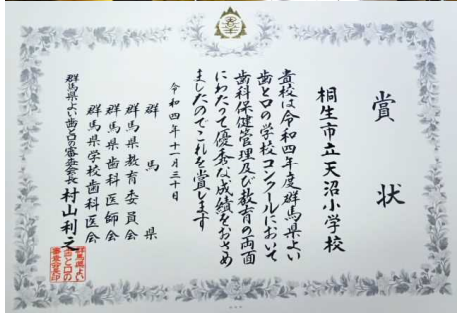 賞状
桐生市立天沼小学校
貴校は令和四年度群馬県よい
歯と口の学校コンクールにおいて
歯科保健管理及び教育の両面
にわたって優秀な成績をおさめ
ましたのでこれを賞します
令和四年十一月三十日
群馬県
群馬県教育委員会
群馬県歯科医師会
群馬県学校歯科医会
群馬県よい歯と口の審査会長 村山利之